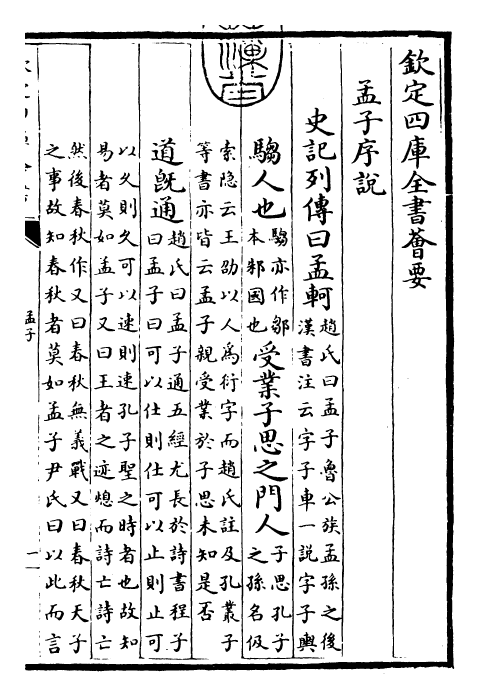 欽定四庫全書薈要
孟子序說
史記列傳曰孟軻趙氏曰孟子魯公族孟孫之後
漢書注云字子車一說字子輿
騶人也騶亦作鄒
本邾國也受業子思之門人子思孔子
之孫名伋
索隱云王劭以人為衍字而趙氏註及孔叢子
等書亦皆云孟子親受業於子思未知是否
道既通趙氏曰孟子通五經尤長於詩書程子
曰孟子曰可以仕則仕可以止則止可
以久則久可以速則速孔子聖之時者也故知
易者莫如孟子又曰王者之迹熄而詩亡詩亡
然後春秋作又曰春秋無義戰又曰春秋天子
之事故知春秋者莫如孟子尹氏曰以此而言
孟子
一